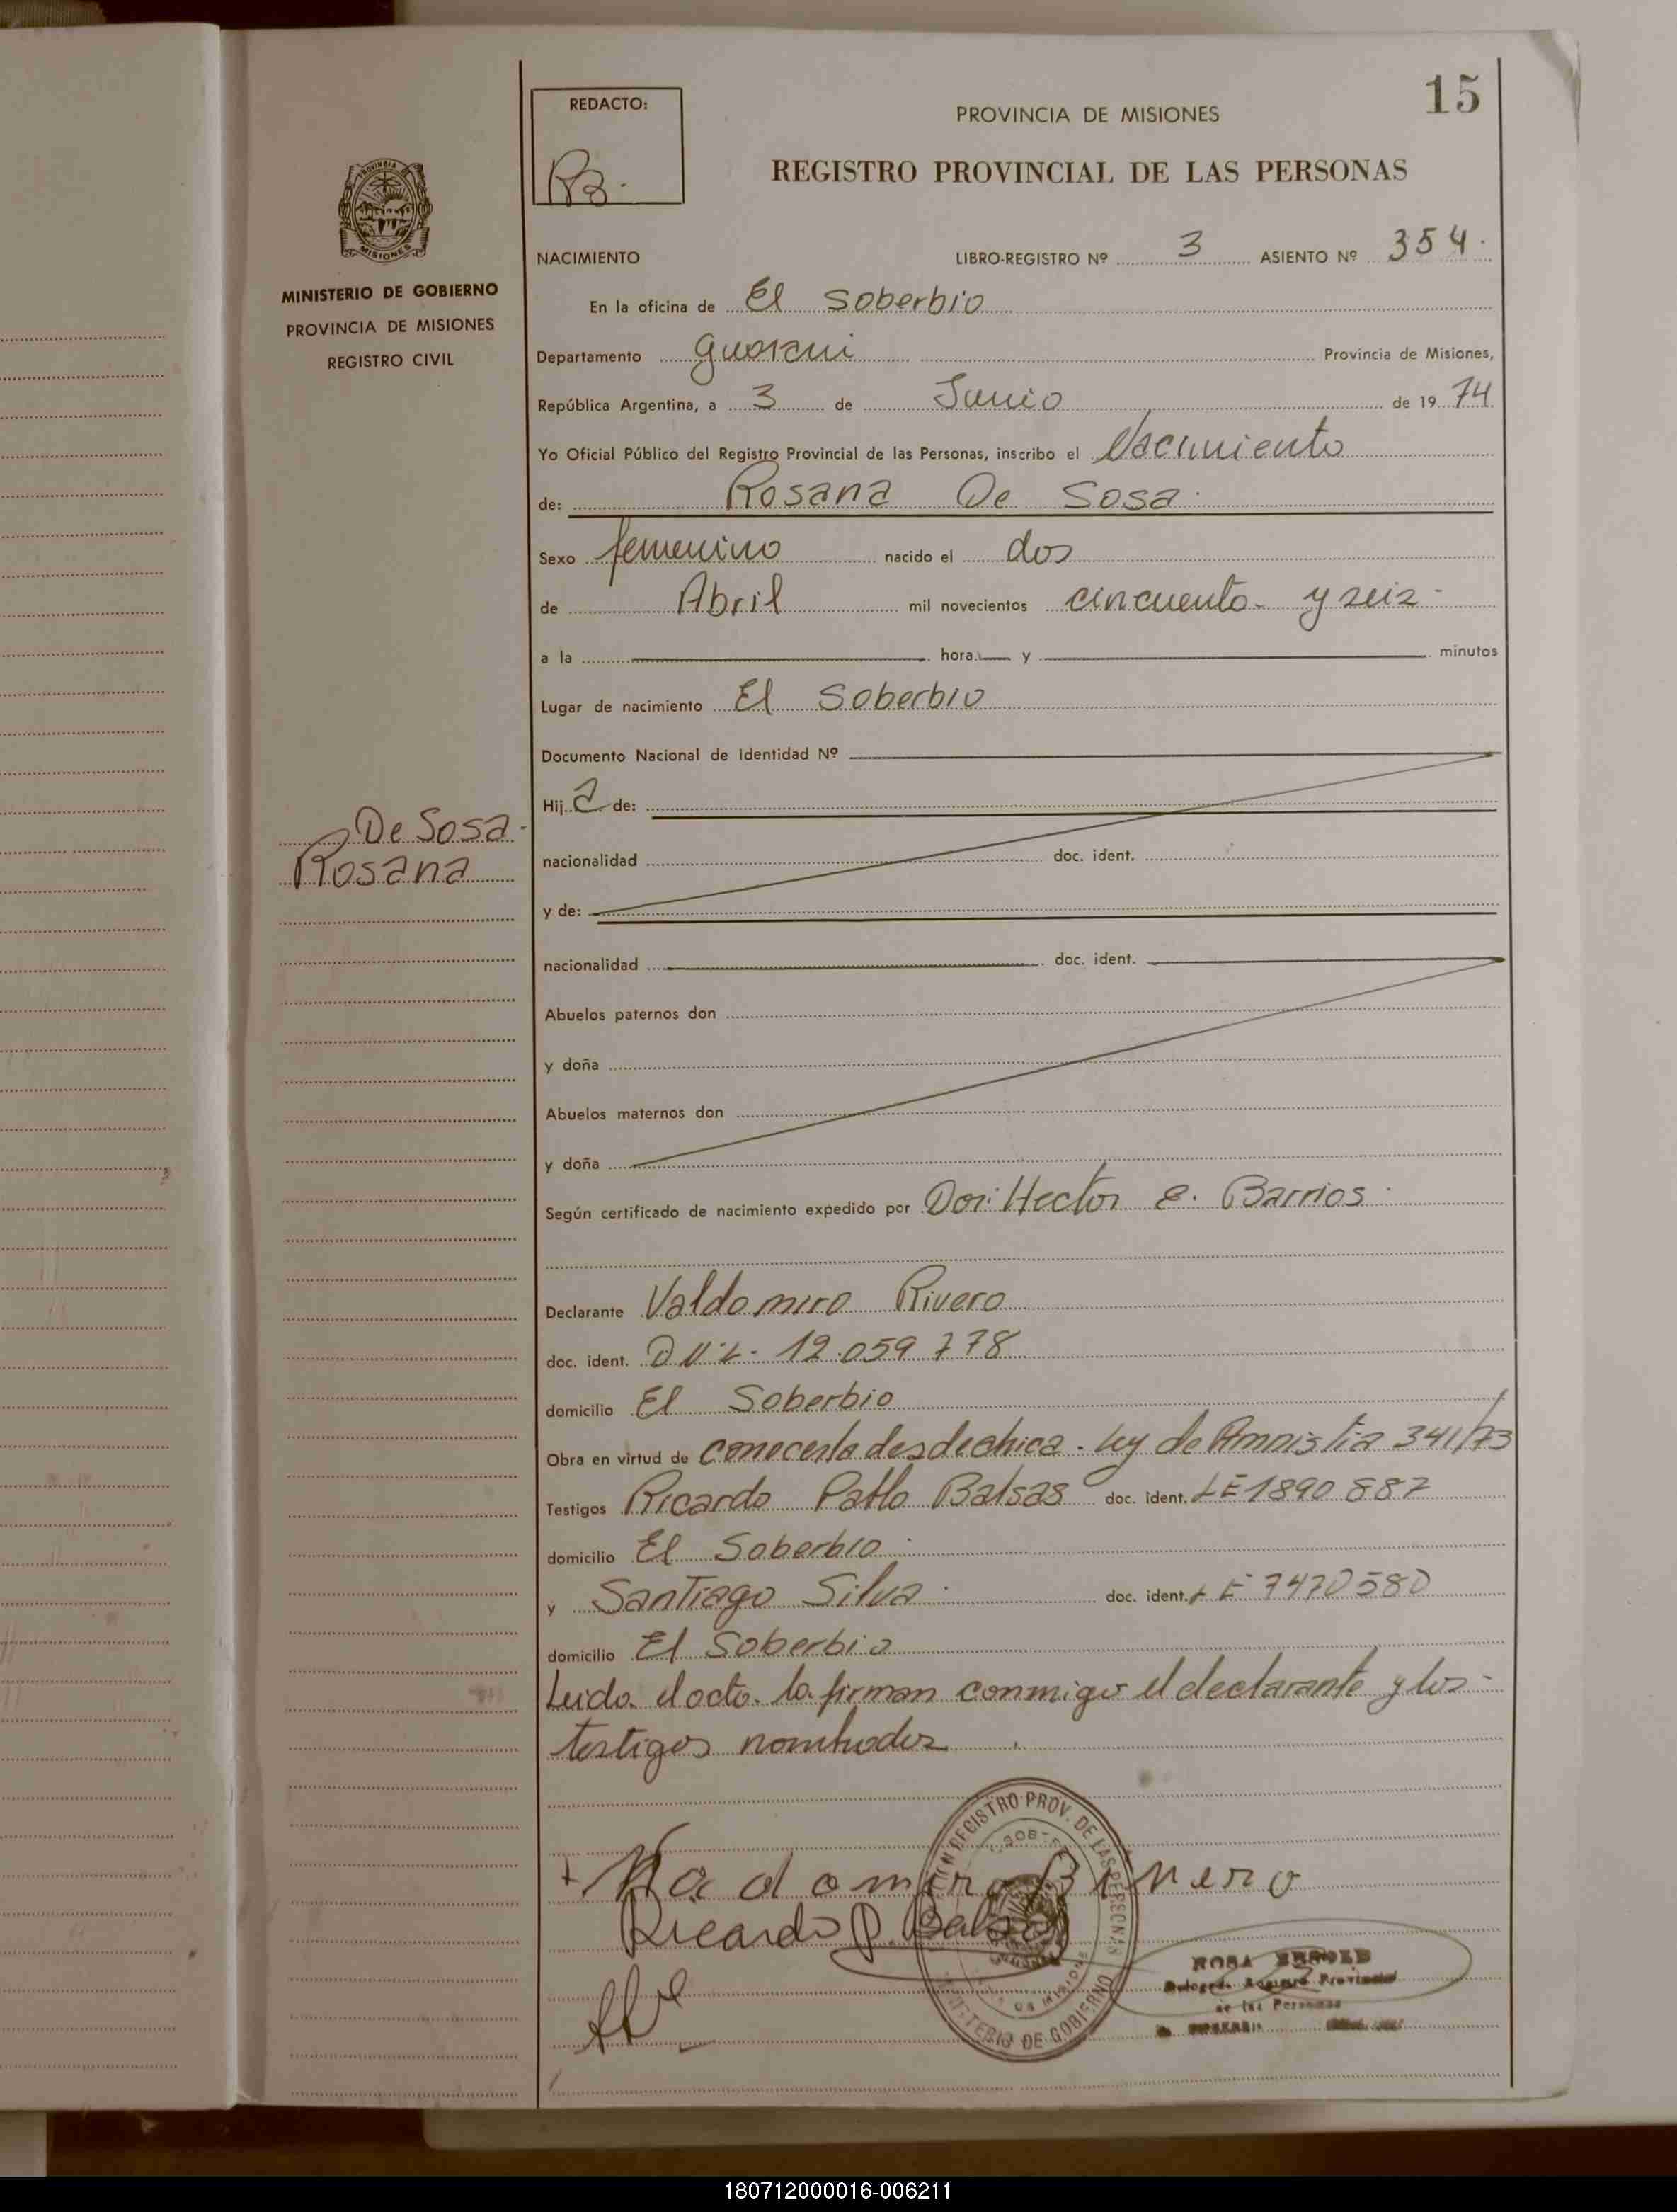 15
REDACTO:
PROVINCIA DE MISIONES
REGISTRO PROVINCIAL DE LAS PERSONAS
PROVINCIA
MISIONES
MINISTERIO DE GOBIERNO
PROVINCIA DE MISIONES
REGISTRO CIVIL
NACIMIENTO LIBRO-REGISTRO Nº 3 ASIENTO Nº 354.
En la oficina de El Soberbio
Departamento guarani Provincia de Misiones,
República Argentina, a 3 de Junio de 19 74
Yo Oficial Público del Registro Provincial de las Personas, inscribo el Nacimiento
de: Rosana De Sosa.
Sexo femenino nacido el dos
de Abril mil novecientos cincuenta y seis -
a la hora y minutos
Lugar de nacimiento El Soberbio
Documento Nacional de Identidad Nº
Hij a de:
De Sosa.
Rosana
nacionalidad doc. ident.
y de:
nacionalidad doc. ident.
Abuelos paternos don
y doña
Abuelos maternos don
y doña
Según certificado de nacimiento expedido por Hector E. Barrios.
Declarante Valdomiro Rivero
doc. ident. D.N.I. 12.059 778
domicilio El Soberbio
Obra en virtud de conocerla desde chica. Ley de Amnistia 341/73
Testigos Ricardo Pablo Balsas doc. ident. LE 1890 887
domicilio El Soberbio.
y Santiago Silva. doc. ident. LE 7470580
domicilio El Soberbio
Leida el acta. la firman conmigo el declarante y los -
testigos nombrados.
REGISTRO PROV. DE LAS PERSONAS
MINISTERIO DE GOBIERNO
Ricardo P. Balsas
ROSA
de las Personas
180712000016-006211